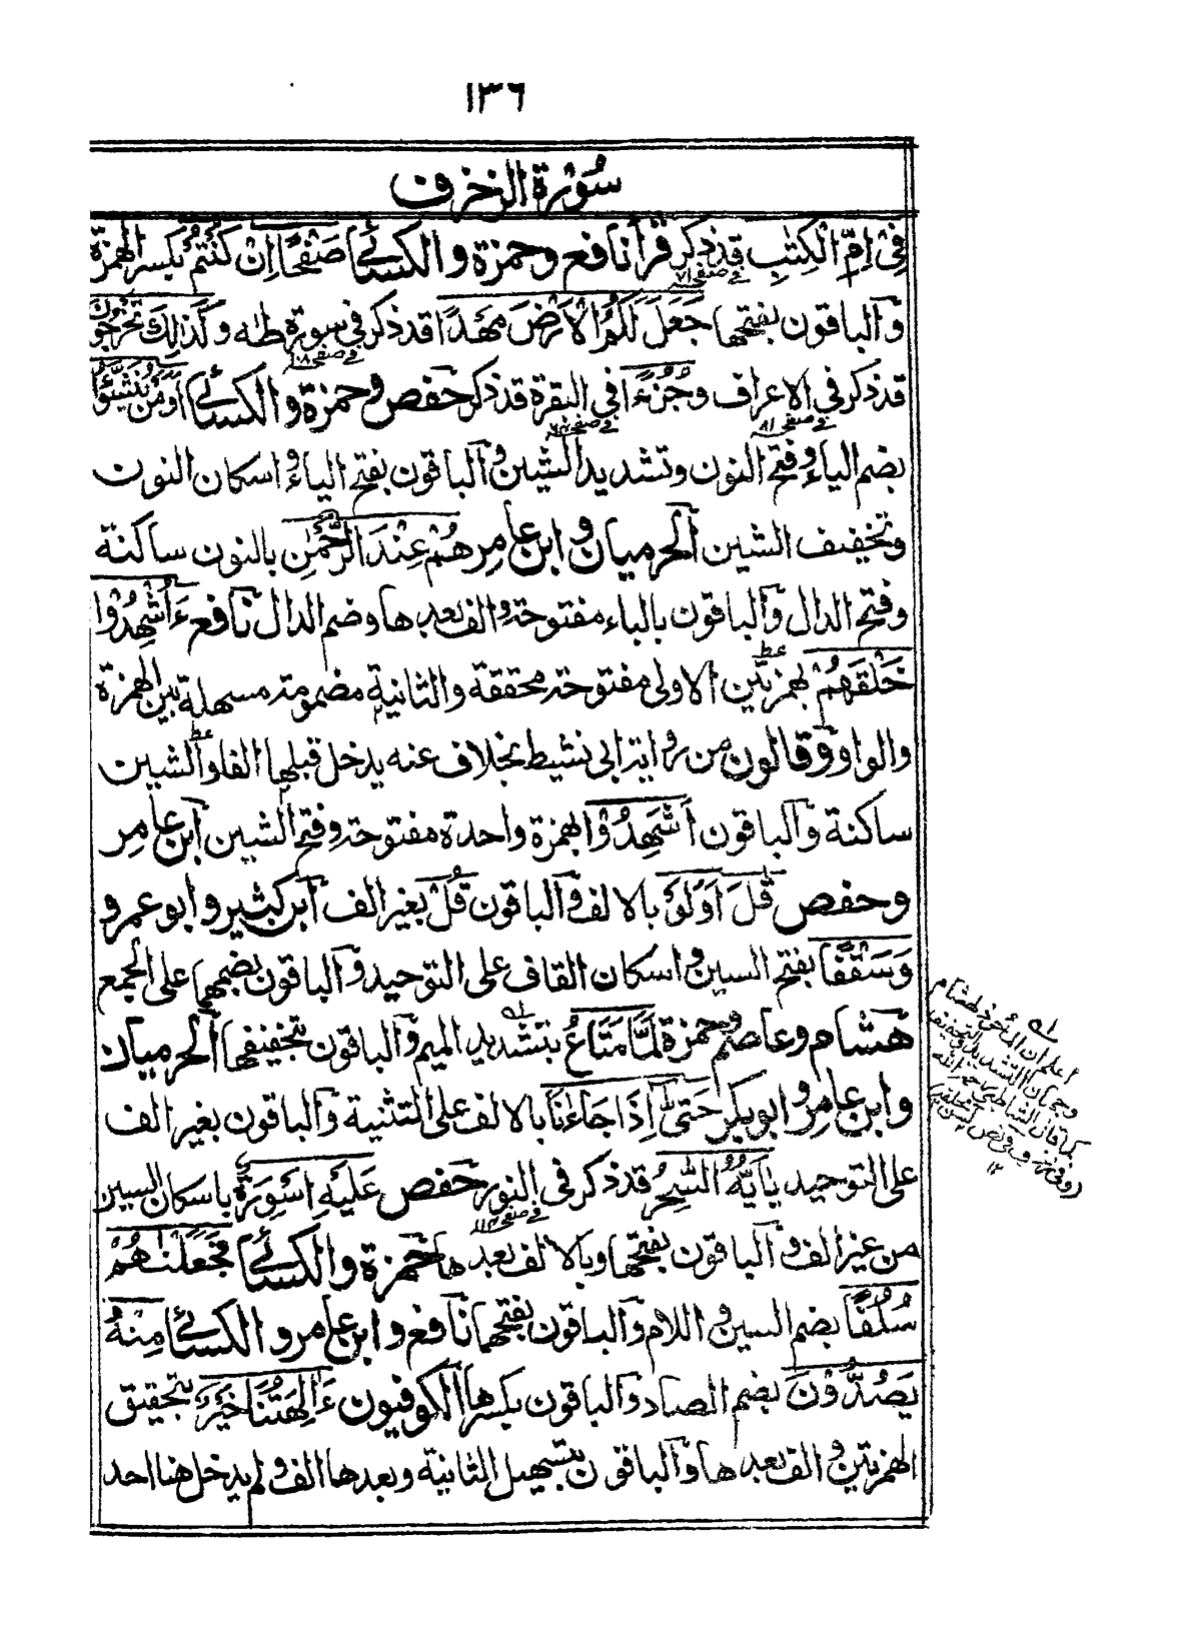 ١٣٦
سُوْرة الزخرف
فِيْ اِمِّ الْكِتٰبِ قد ذكر قرأ نافع وحمزة والكسائي صَفْحًا اِنْ كُنْتُمْ بكسر الهمزة
في صفحه ٧١
والباقون بفتحها جَعَلَ لَكُمُ الْاَرْضَ مَهْدًا قد ذكر في سورة طه وكَذٰلِكَ تُخْرَجُوْنَ
في صفحه ١٠٨
قد ذكر في الاعراف وجُزْءًا في البقرة قد ذكر حفص وحمزة والكسائي اَوَمَنْ يُنَشَّؤُا
في صفحه ٨١ في صفحه
بضم الياء وفتح النون وتشديد الشين والباقون بفتح الياء واسكان النون
وتخفيف الشين الحرميان وابن عامر هُمْ عِنْدَ الرَّحْمٰنِ بالنون ساكنة
وفتح الدال والباقون بالباء مفتوحة والف بعدها وضم الدال نافع ءَاُشْهِدُوْا
خَلْقَهُمْ بهمزتين الاولى مفتوحة محققة والثانية مضمومة مسهلة بين الهمزة
والواو وقالون من رواية ابى نشيط بخلاف عنه يدخل قبلها الفا والشين
ساكنة والباقون اَشَهِدُوْا بهمزة واحدة مفتوحة وفتح الشين ابن عامر
وحفص قٰلَ اَوَلَوْ بالالف والباقون قُلْ بغير الف ابن كثير وابو عمرو
وَسَقْفًا بفتح السين واسكان القاف على التوحيد والباقون بضمهما على الجمع
هشام وعاصم وحمزة لَمَّا مَتَاعُ بتشديد الميم والباقون بتخفيفها الحرميان
وابن عامر وابو بكر حَتّٰى اِذَا جَاءٰنَا بالالف على التثنية والباقون بغير الف
على التوحيد يٰاَيُّهُ السّٰحِرُ قد ذكر في النور حفص عَلَيْهِ اَسْوِرَةٌ باسكان السين
في صفحه
من غير الف والباقون بفتحها وبالالف بعدها حمزة والكسائي فَجَعَلْنٰهُمْ
سُلُفًا بضم السين واللام والباقون بفتحهما نافع وابن عامر والكسائي مِنْهُ
يَصُدُّوْنَ بضم الصاد والباقون بكسرها الكوفيون ءَاٰلِهَتُنَا خَيْرٌ بتحقيق
الهمزتين والف بعدها والباقون بتسهيل الثانية وبعدها الف ولم يدخل هنا احد
له
اعلم ان
وجهان التشديد والتخفيف
كما قال الشاطبي رحمه الله
١٢